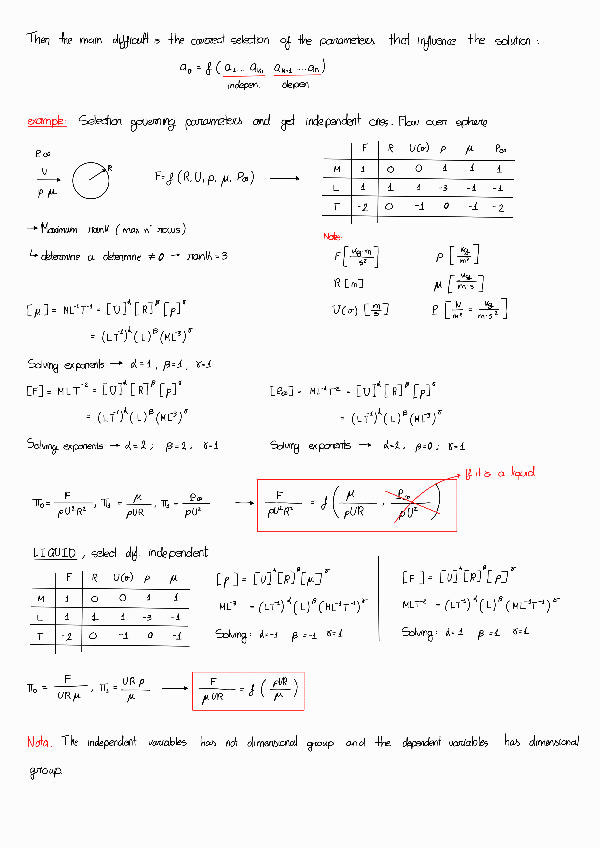 Then the main difficult is the correct selection of the parameters that influence the solution:
a₀ = f (a₁ ... aₖ, aₖ₊₁ ... aₙ)
indepen. depen
example: Selection governing parameters and get independent ones. Flow over sphere
P∞
U
ρ μ
R
F = f (R, U, ρ, μ, P∞) →
F R U(σ) ρ μ P∞
M 1 0 0 1 1 1
L 1 1 1 -3 -1 -1
T -2 0 -1 0 -1 -2
→ Maximum rank (max nº rows)
↳ determine a determine ≠ 0 → rank = 3
Note:
F [kg·m/s²] ρ [kg/m³]
R [m] μ [kg/m·s]
U(σ) [m/s] P [N/m² = kg/m·s²]
[μ] = ML⁻¹T⁻¹ = [U]^α [R]^β [ρ]^γ
= (LT⁻¹)^α (L)^β (ML⁻³)^γ
Solving exponents → α=1, β=1, γ=1
[F] = MLT⁻² = [U]^α [R]^β [ρ]^γ [P∞] = ML⁻¹T⁻² = [U]^α [R]^β [ρ]^γ
= (LT⁻¹)^α (L)^β (ML⁻³)^γ = (LT⁻¹)^α (L)^β (ML⁻³)^γ
Solving exponents → α=2; β=2; γ=1 Solving exponents → α=2; β=0; γ=1
If it is a liquid
Π₀ = F/ρU²R², Π₁ = μ/ρUR, Π₂ = P∞/ρU² → F/ρU²R² = f (μ/ρUR, P∞/ρU²)
LIQUID, select dif. independent
F R U(σ) ρ μ
M 1 0 0 1 1
L 1 1 1 -3 -1
T -2 0 -1 0 -1
[ρ] = [U]^α [R]^β [μ]^γ
ML⁻³ = (LT⁻¹)^α (L)^β (ML⁻¹T⁻¹)^γ
Solving: α=-1 β=-1 γ=1
[F] = [U]^α [R]^β [ρ]^γ
MLT⁻² = (LT⁻¹)^α (L)^β (ML⁻¹T⁻¹)^γ
Solving: α=1 β=1 γ=1
Π₀ = F/URμ, Π₁ = URρ/μ → F/μUR = f (ρUR/μ)
Nota. The independent variables has not dimensional group and the dependent variables has dimensional
group.